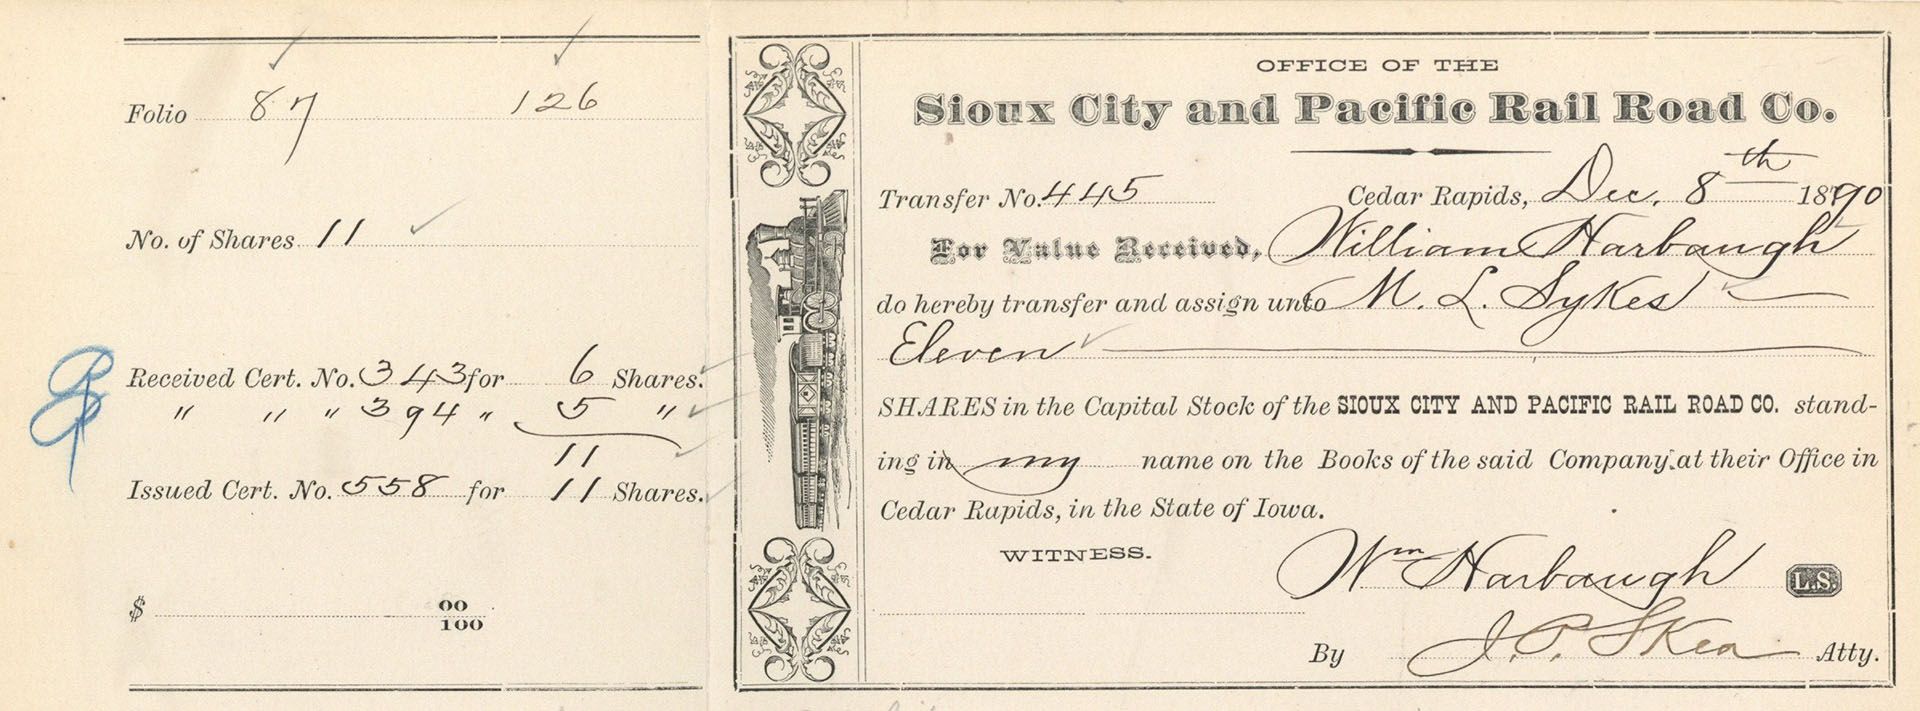 Folio 87 126
No. of Shares 11
Received Cert. No. 343 for 6 Shares.
" " " 394 " 5 "
11
Issued Cert. No. 558 for 11 Shares.
$ 00/100
OFFICE OF THE
Sioux City and Pacific Rail Road Co.
Transfer No. 445 Cedar Rapids, Dec. 8th 1890
For Value Received, William Harbaugh
do hereby transfer and assign unto M. L. Sykes
Eleven
SHARES in the Capital Stock of the SIOUX CITY AND PACIFIC RAIL ROAD CO. stand-
ing in my name on the Books of the said Company, at their Office in
Cedar Rapids, in the State of Iowa.
WITNESS.
Wm Harbaugh L.S.
By J. P. Skea Atty.